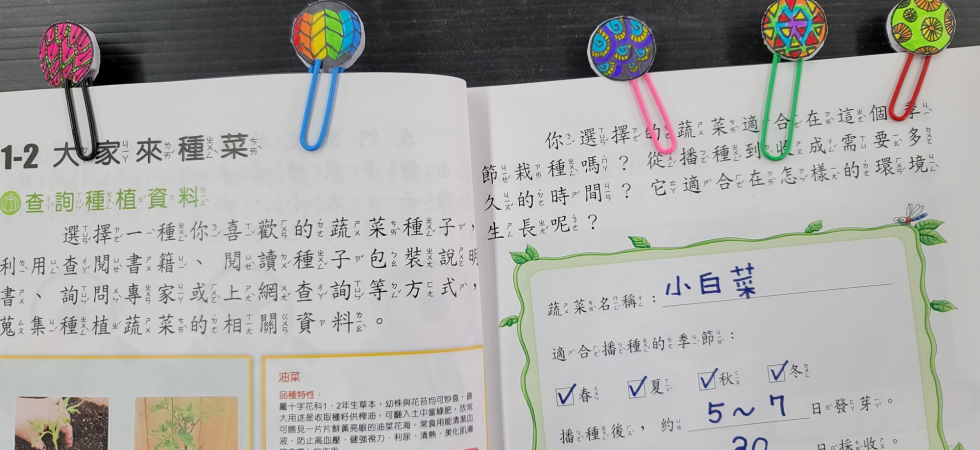 1-2 大家來種菜
查詢種植資料
選擇一種你喜歡的蔬菜種子，
利用查閱書籍、閱讀種子包裝說明
書、詢問專家或上網查詢等方式，
蒐集種植蔬菜的相關資料。
油菜
品種特性：
屬十字花科1、2年生草本，幼株與花苔均可炒食，最
大用途是收取種籽供榨油，可翻入土中當綠肥，放常
可見一片片鮮黃亮眼的油菜花海。常食用能清潔血
液、防止高血壓、健強視力、利尿、清熱、美化肌膚
你選擇的蔬菜適合在這個季
節栽種嗎？從播種到收成需要多
久的時間？它適合在怎樣的環境
生長呢？
蔬菜名稱：小白菜
適合播種的季節：
✓春 ✓夏 ✓秋 ✓冬
播種後，約 5～7 日發芽。
30 日採收。